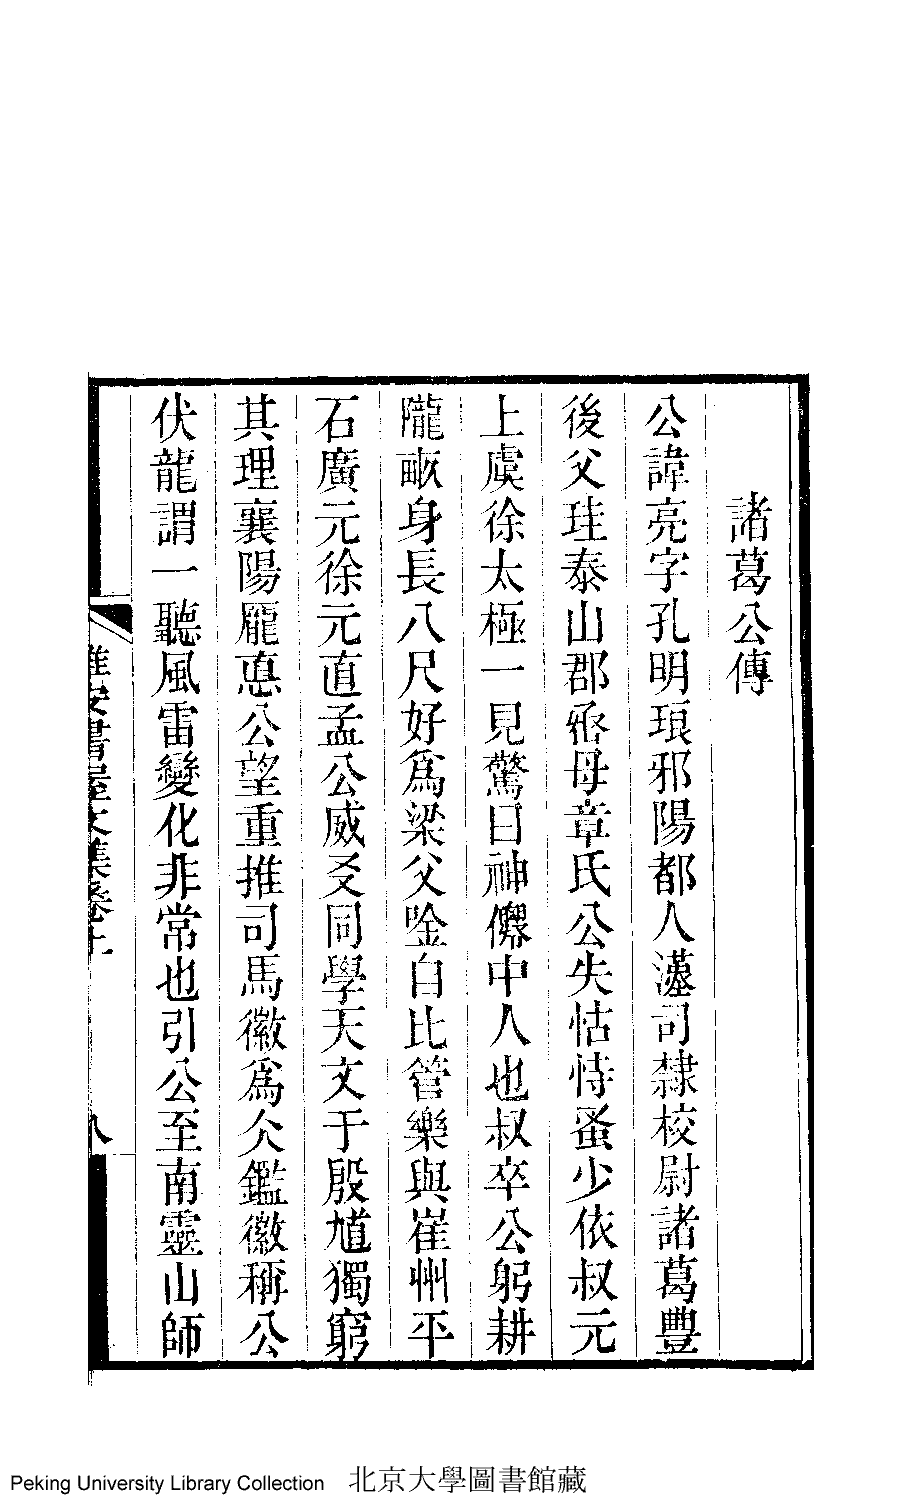 諸葛公傳
公諱亮字孔明琅邪陽都人漢司隸校尉諸葛豐
後父珪泰山郡丞母章氏公失怙恃蚤少依叔元
上虞徐太極一見驚曰神僊中人也叔卒公躬耕
隴畝身長八尺好爲梁父唫自比管樂與崔州平
石廣元徐元直孟公威爻同學天文于殷馗獨窮
其理襄陽龐悳公望重推司馬徽爲仌鑑徽稱公
伏龍謂一聽風雷變化非常也引公至南靈山師
惟安書屋文集卷十
八
Peking University Library Collection 北京大學圖書館藏